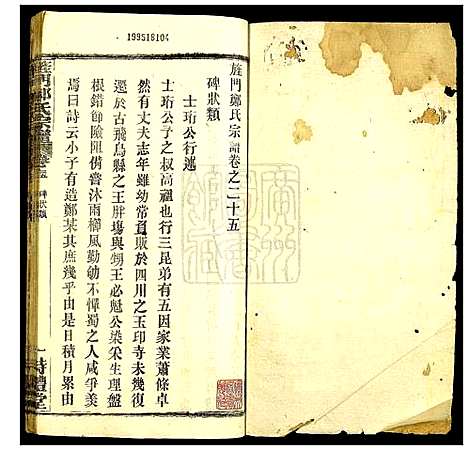 199518104
旌門鄭氏宗譜卷之二十五
碑狀類
士珩公行述
士珩公子之叔高祖也行三昆弟有五因家業蕭條卓
然有丈夫志年雖幼常負販於四川之玉印寺未幾復
遷於古飛烏縣之王胖塲與甥王必魁公染采生理盤
根錯節險阻備嘗沐雨櫛風勤劬不憚蜀之人咸爭美
焉曰詩云小子有造鄭某其庶幾乎由是日積月累由
旌門鄭氏宗譜
碑狀類
一
詩禮堂